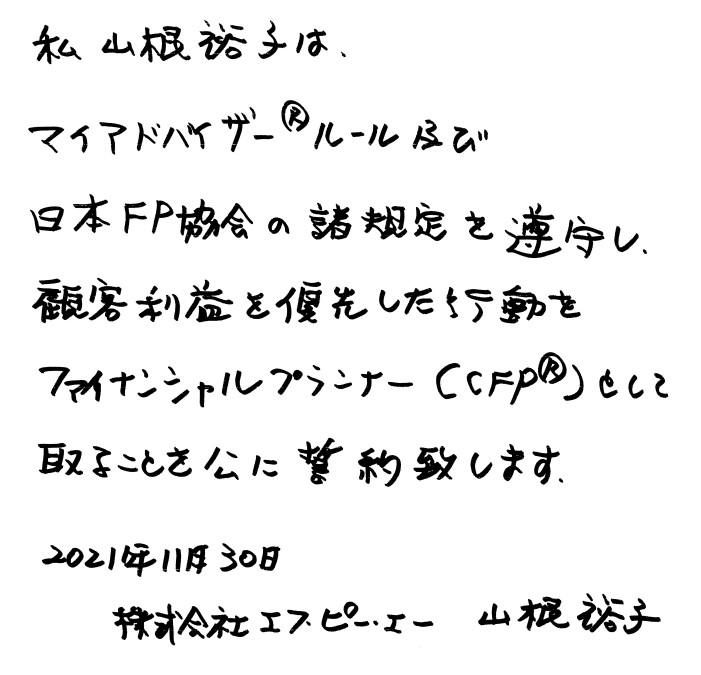 私 山根裕子は、
マイアドバイザー®ルール及び
日本FP協会の諸規定を遵守し、
顧客利益を優先した行動を
ファイナンシャルプランナー(CFP®)として
取ることを公に誓約致します。
2021年11月30日
株式会社エフ・ピー・エー 山根裕子